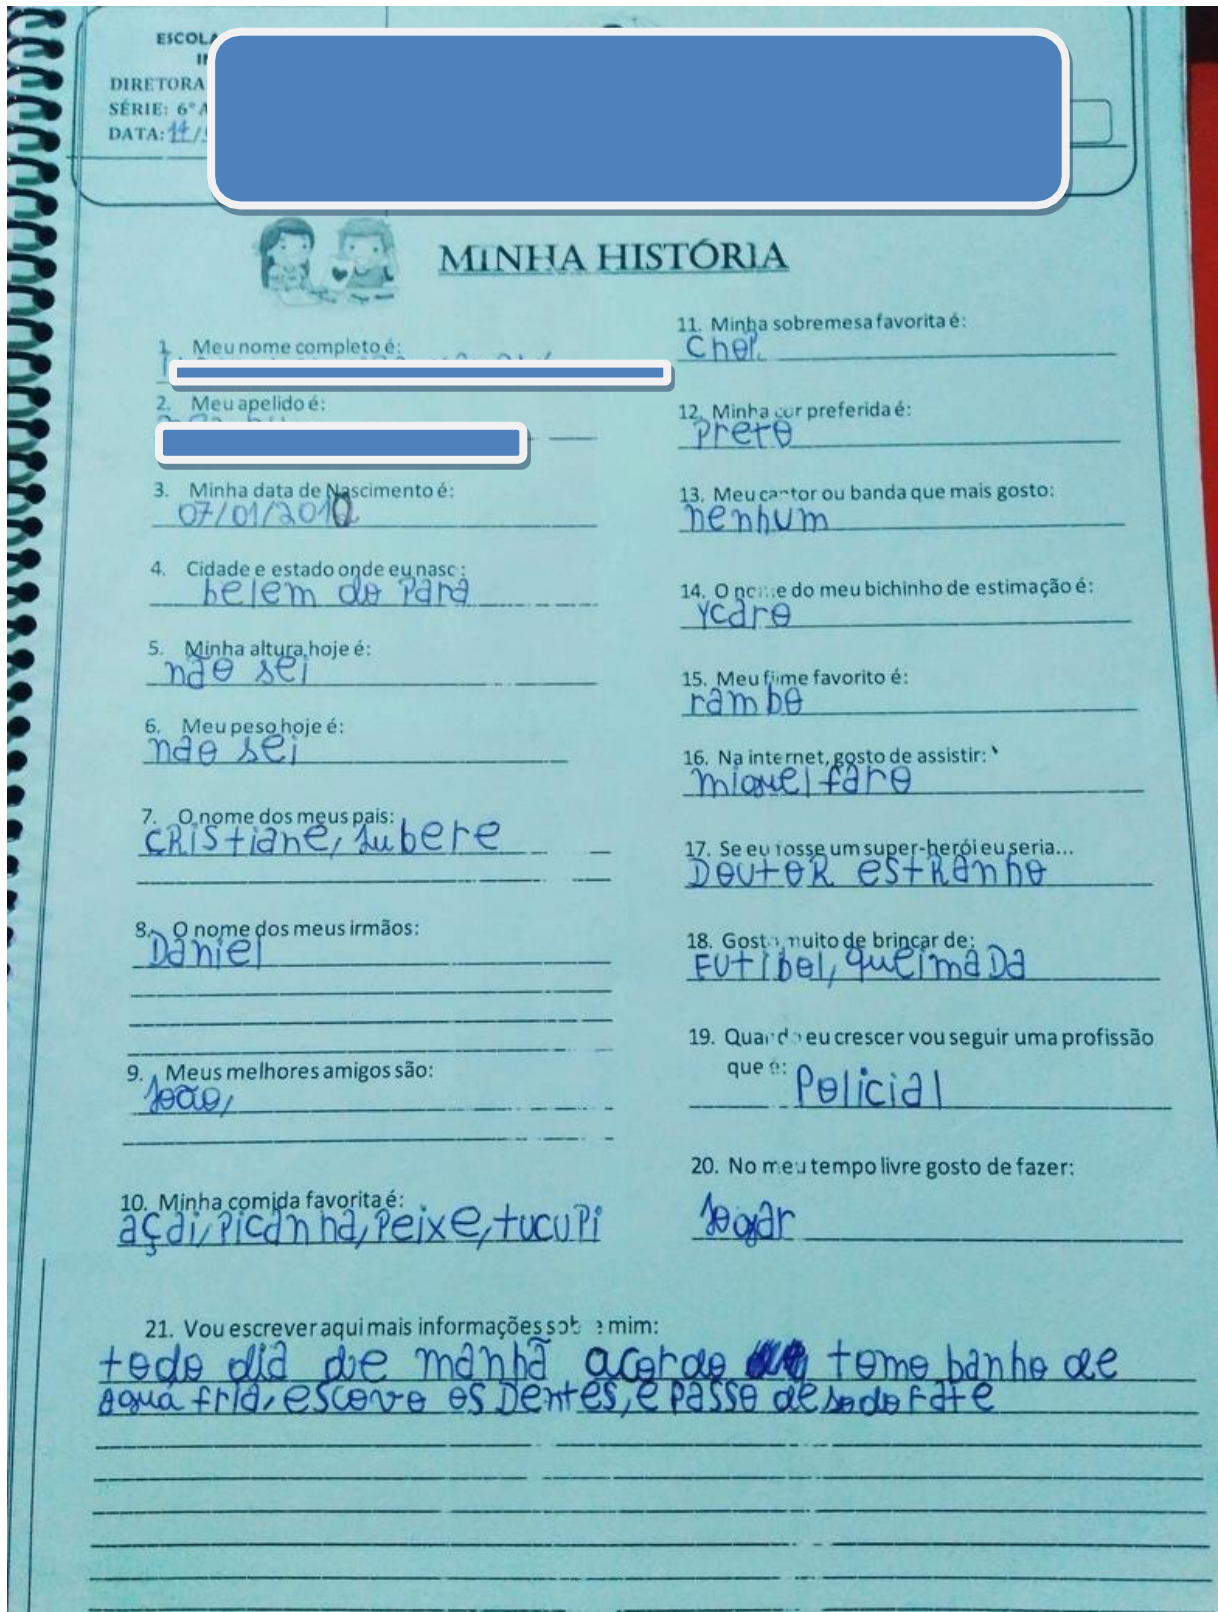 ESCOLA
DIRETORA
SÉRIE: 6º A
DATA: 11/
MINHA HISTÓRIA
1. Meu nome completo é:
2. Meu apelido é:
3. Minha data de Nascimento é:
07/01/2010
4. Cidade e estado onde eu nasci:
belem do Pará
5. Minha altura hoje é:
não sei
6. Meu peso hoje é:
não sei
7. O nome dos meus pais:
CRIStiane, Lubere
8. O nome dos meus irmãos:
Daniel
9. Meus melhores amigos são:
João,
10. Minha comida favorita é:
açai, Picanha, Peixe, tucuPi
11. Minha sobremesa favorita é:
12. Minha cor preferida é:
Preto
13. Meu cantor ou banda que mais gosto:
nenhum
14. O nome do meu bichinho de estimação é:
Ycaro
15. Meu filme favorito é:
rambo
16. Na internet, gosto de assistir:
miguel faro
17. Se eu fosse um super-herói eu seria...
DoutoR estRanho
18. Gosto muito de brincar de:
Futibol, queimaDa
19. Quando eu crescer vou seguir uma profissão
que é: Policial
20. No meu tempo livre gosto de fazer:
Jogar
21. Vou escrever aqui mais informações sobre mim:
todo dia de manhã acordo tomo banho de
agua fria, escovo os Dentes, e passo